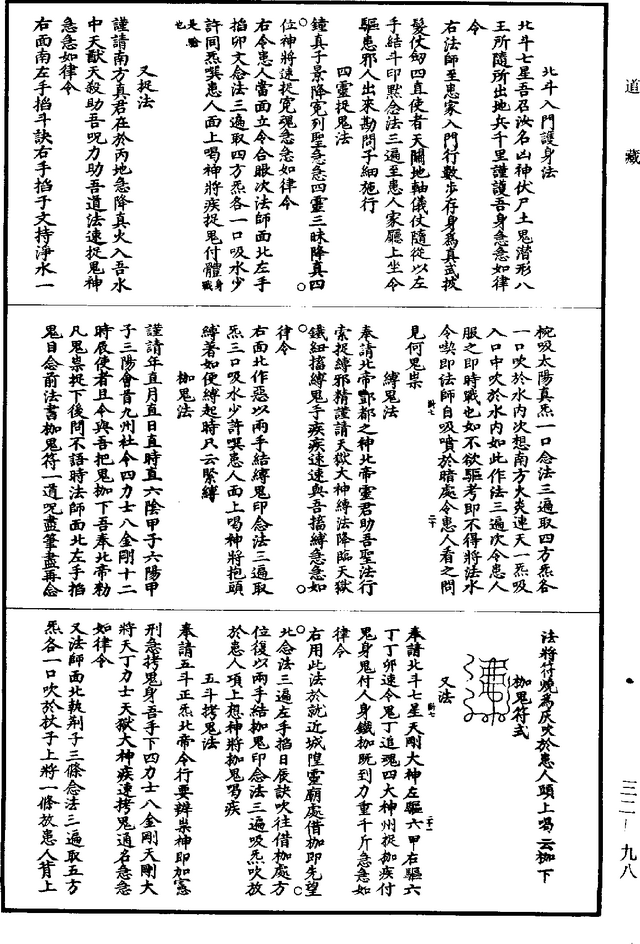 道藏
北斗入門護身法
北斗七星吾召汝名凶神伏尸土鬼潛形八
王所隨所出地兵千里謹護吾身急急如律
令
右法師至患家入門行數步存身為真武披
髮仗劒四直使者天關地軸儀仗隨從以左
手結斗印黙念法三遍至患人家廳上坐令
驅患邪人出來勘問子細施行
四靈捉鬼法
鐘真子景降寃列聖急急四靈三昧降真四
位神將速捉寃魂急急如律令
右令患人當面立令合眼次法師面北左手
掐卯文念法三遍取四方炁各一口吸水少
許同炁噀患人面上喝神將疾捉鬼付體身戰
是驗也
又捉法
謹請南方真君在於丙地急降真火入吾水
中天猷天殺助吾呪力助吾道法速捉鬼神
急急如律令
右面南左手掐斗訣右手掐于文持淨水一
椀吸太陽真炁一口念法三遍取四方炁各
一口吹於水内次想南方火炎連天一炁吸
入口中吹於水内如此作法三遍次令患人
服之即時戰也如不欲驅考即不得將法水
令喫即法師自吸噴於暗處令患人看之問
見何鬼祟
縛鬼法
奉請北帝酆都之神北帝靈君助吾聖法行
索捉縛邪精謹請天獄大神縛法降臨天獄
鐵紐擒縛鬼手疾疾速速與吾擒縛急急如
律令
右面北作惡以兩手結縛鬼印念法三遍取
炁三口吸水少許噀患人面上喝神將抱頭
縛著如使縛起時只云緊縛
枷鬼法
謹請年直月直日直時直六陰甲子六陽甲
子三陽會首九州社令四力士八金剛十二
時辰使者且令與吾把鬼枷下吾奉北帝勑
凡鬼祟捉下後問不語時法師面北左手掐
鬼目念前法書枷鬼符一道呪盡筆盡再念
法將符燒為灰吹於患人頭上喝云枷下
枷鬼符式
又法
奉請北斗七星天剛大神左驅六甲右驅六
丁丁卯速令鬼丁追魂四大神州捉枷疾付
鬼身鬼付人身鐵枷既到力重千斤急急如
律令
右用此法於就近城隍靈廟處借枷即先望
北念法三遍左手掐日辰訣吹往借枷處方
位復以兩手結枷鬼印念法三遍吸炁吹放
於患人項上想神將枷鬼喝疾
五斗拷鬼法
奉請五斗正炁北帝令行要辨祟神即加寃
刑急拷鬼身吾手下四力士八金剛天剛大
將天丁力士天獄大神疾速拷鬼通名急急
如律令
又法師面北執荆子三條念法三遍取五方
炁各一口吹於杖子上將一條放患人背上
三二－九八